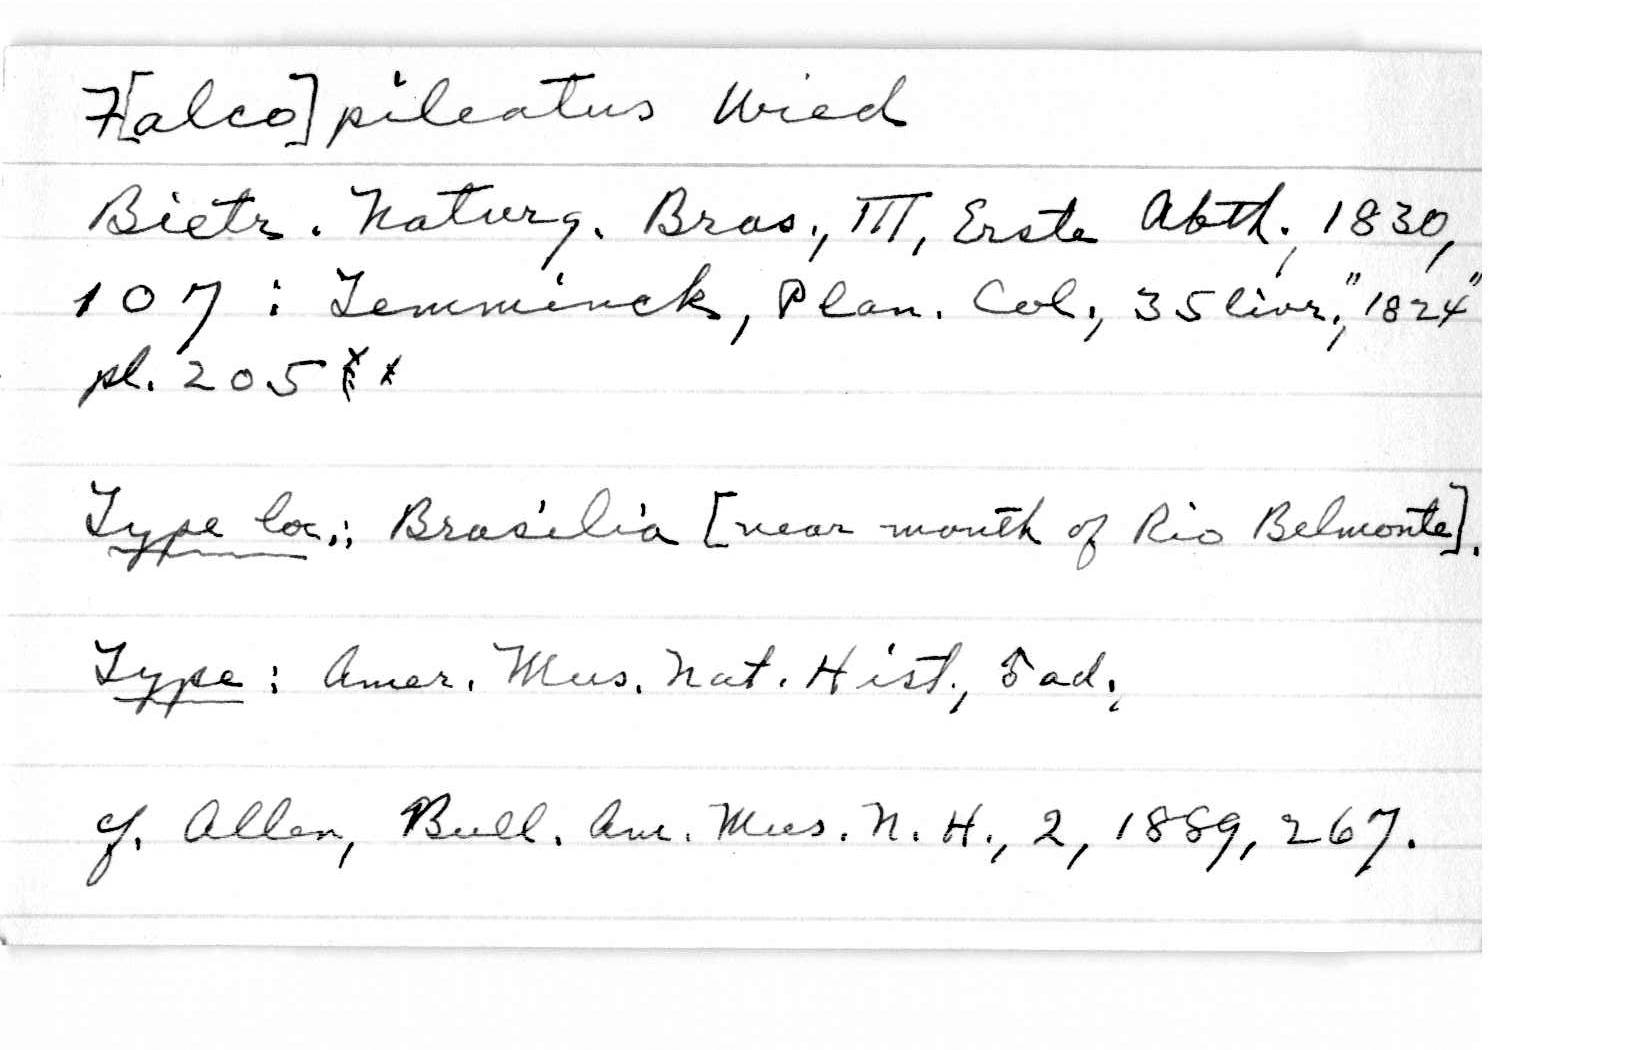 F[alco] pileatus Wied
Bietr. Naturg. Bras., III, Erste Abth., 1830,
107; Temminck, Plan. Col., 35 livr., "1824"
pl. 205
Type loc.: Brasilia [near mouth of Rio Belmonte].
Type: Amer. Mus. Nat. Hist., ad.
cf. Allen, Bull. Am. Mus. N. H., 2, 1889, 267.